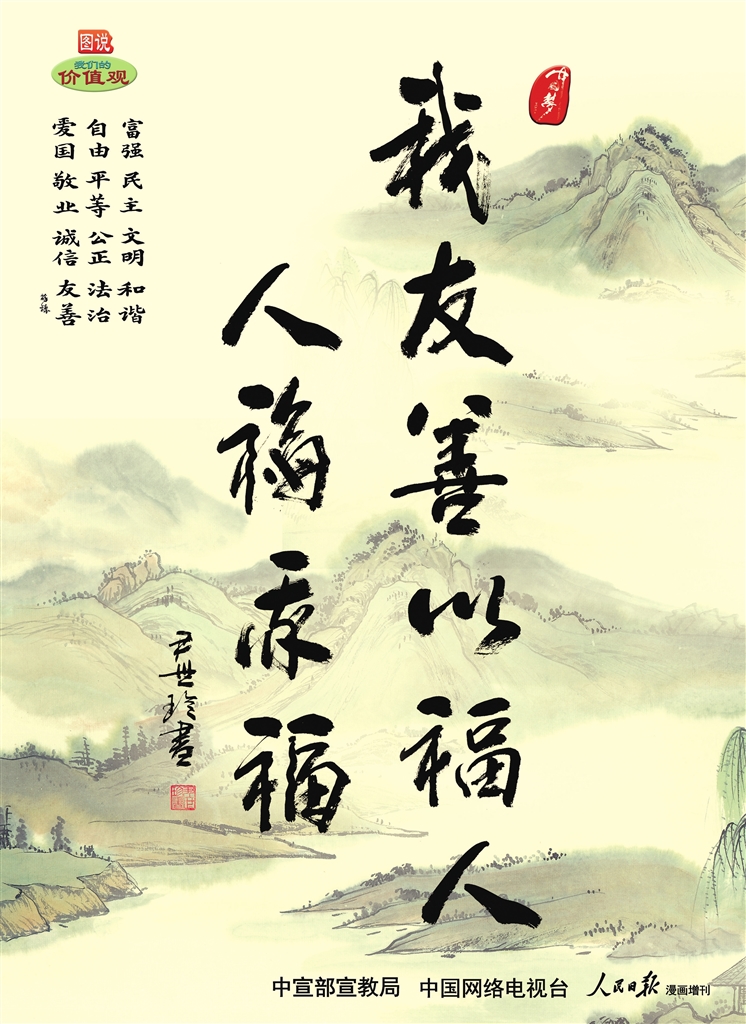 图说
我们的
价值观
富强 民主 文明 和谐
自由 平等 公正 法治
爱国 敬业 诚信 友善
中國夢
我友善以福人
人福亦福
尹世玲書
中宣部宣教局 中国网络电视台 人民日报 漫画增刊